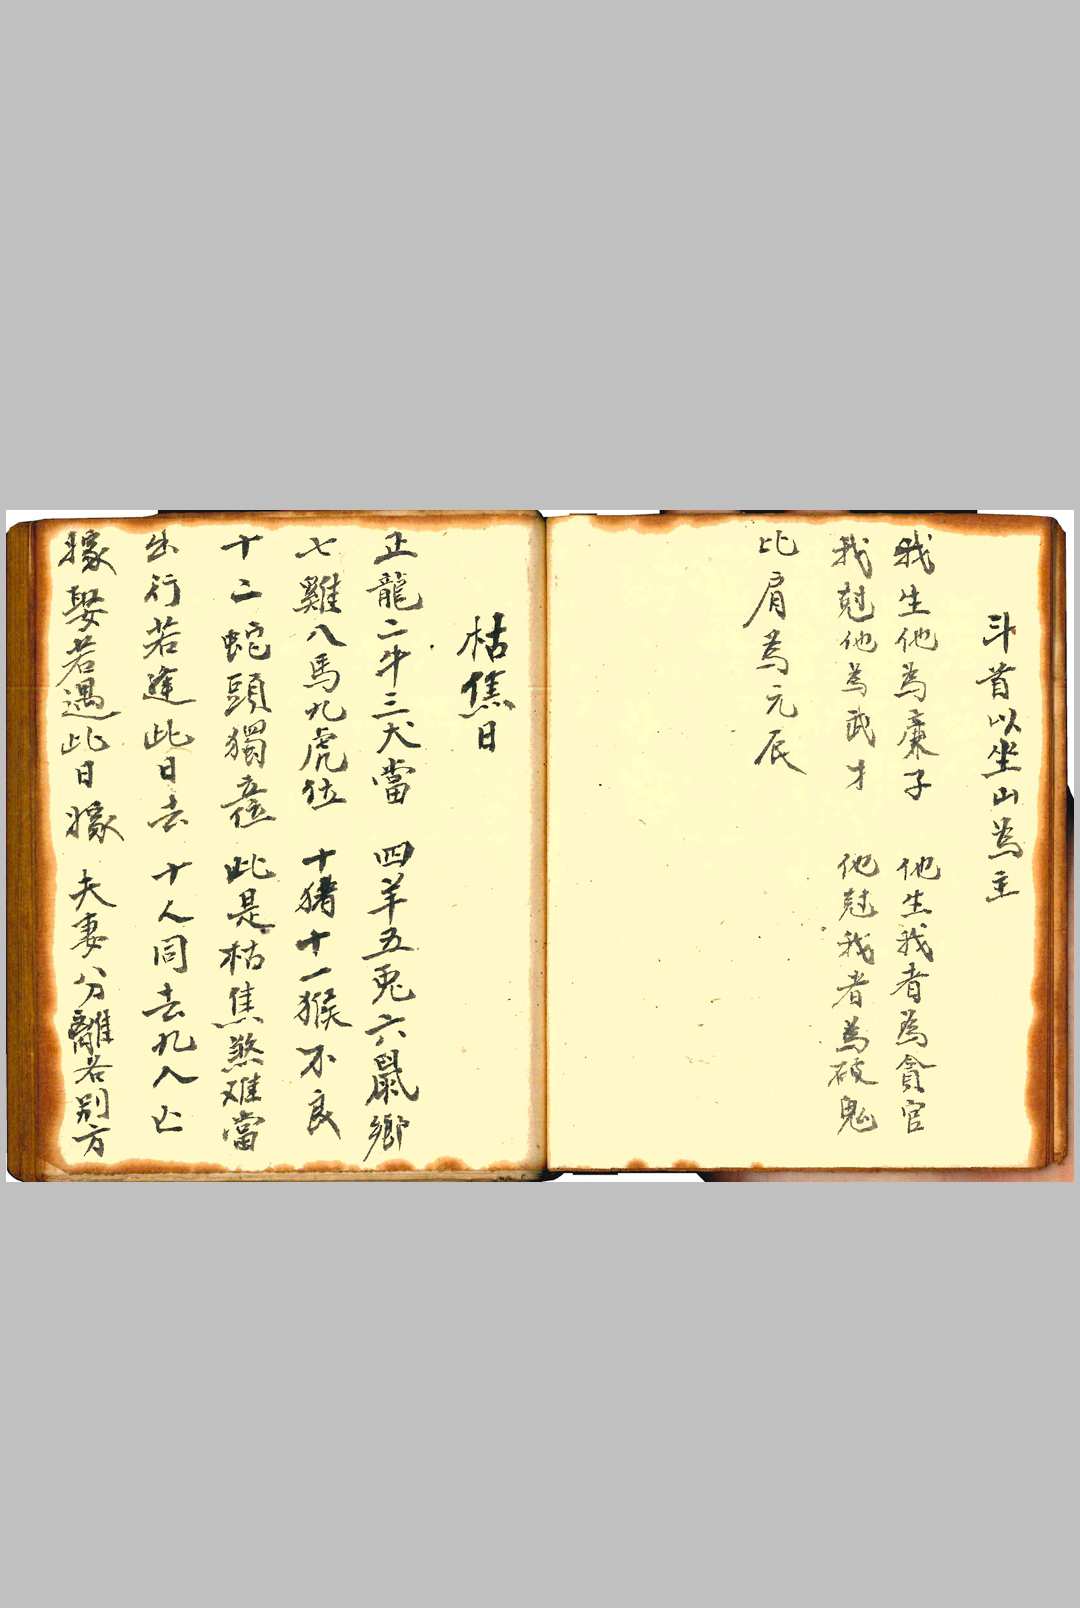 斗首以坐山為主
我生他為廉子 他生我者為貪官
我尅他為武才 他尅我者為破鬼
比肩為元辰
枯焦日
正龍二牛三犬當 四羊五兎六鼠鄉
七雞八馬九虎位 十猪十一猴不良
十二蛇頭獨位 此是枯焦煞难當
出行若逢此日去 十人同去九人亡
嫁娶若遇此日嫁 夫妻分離各别方